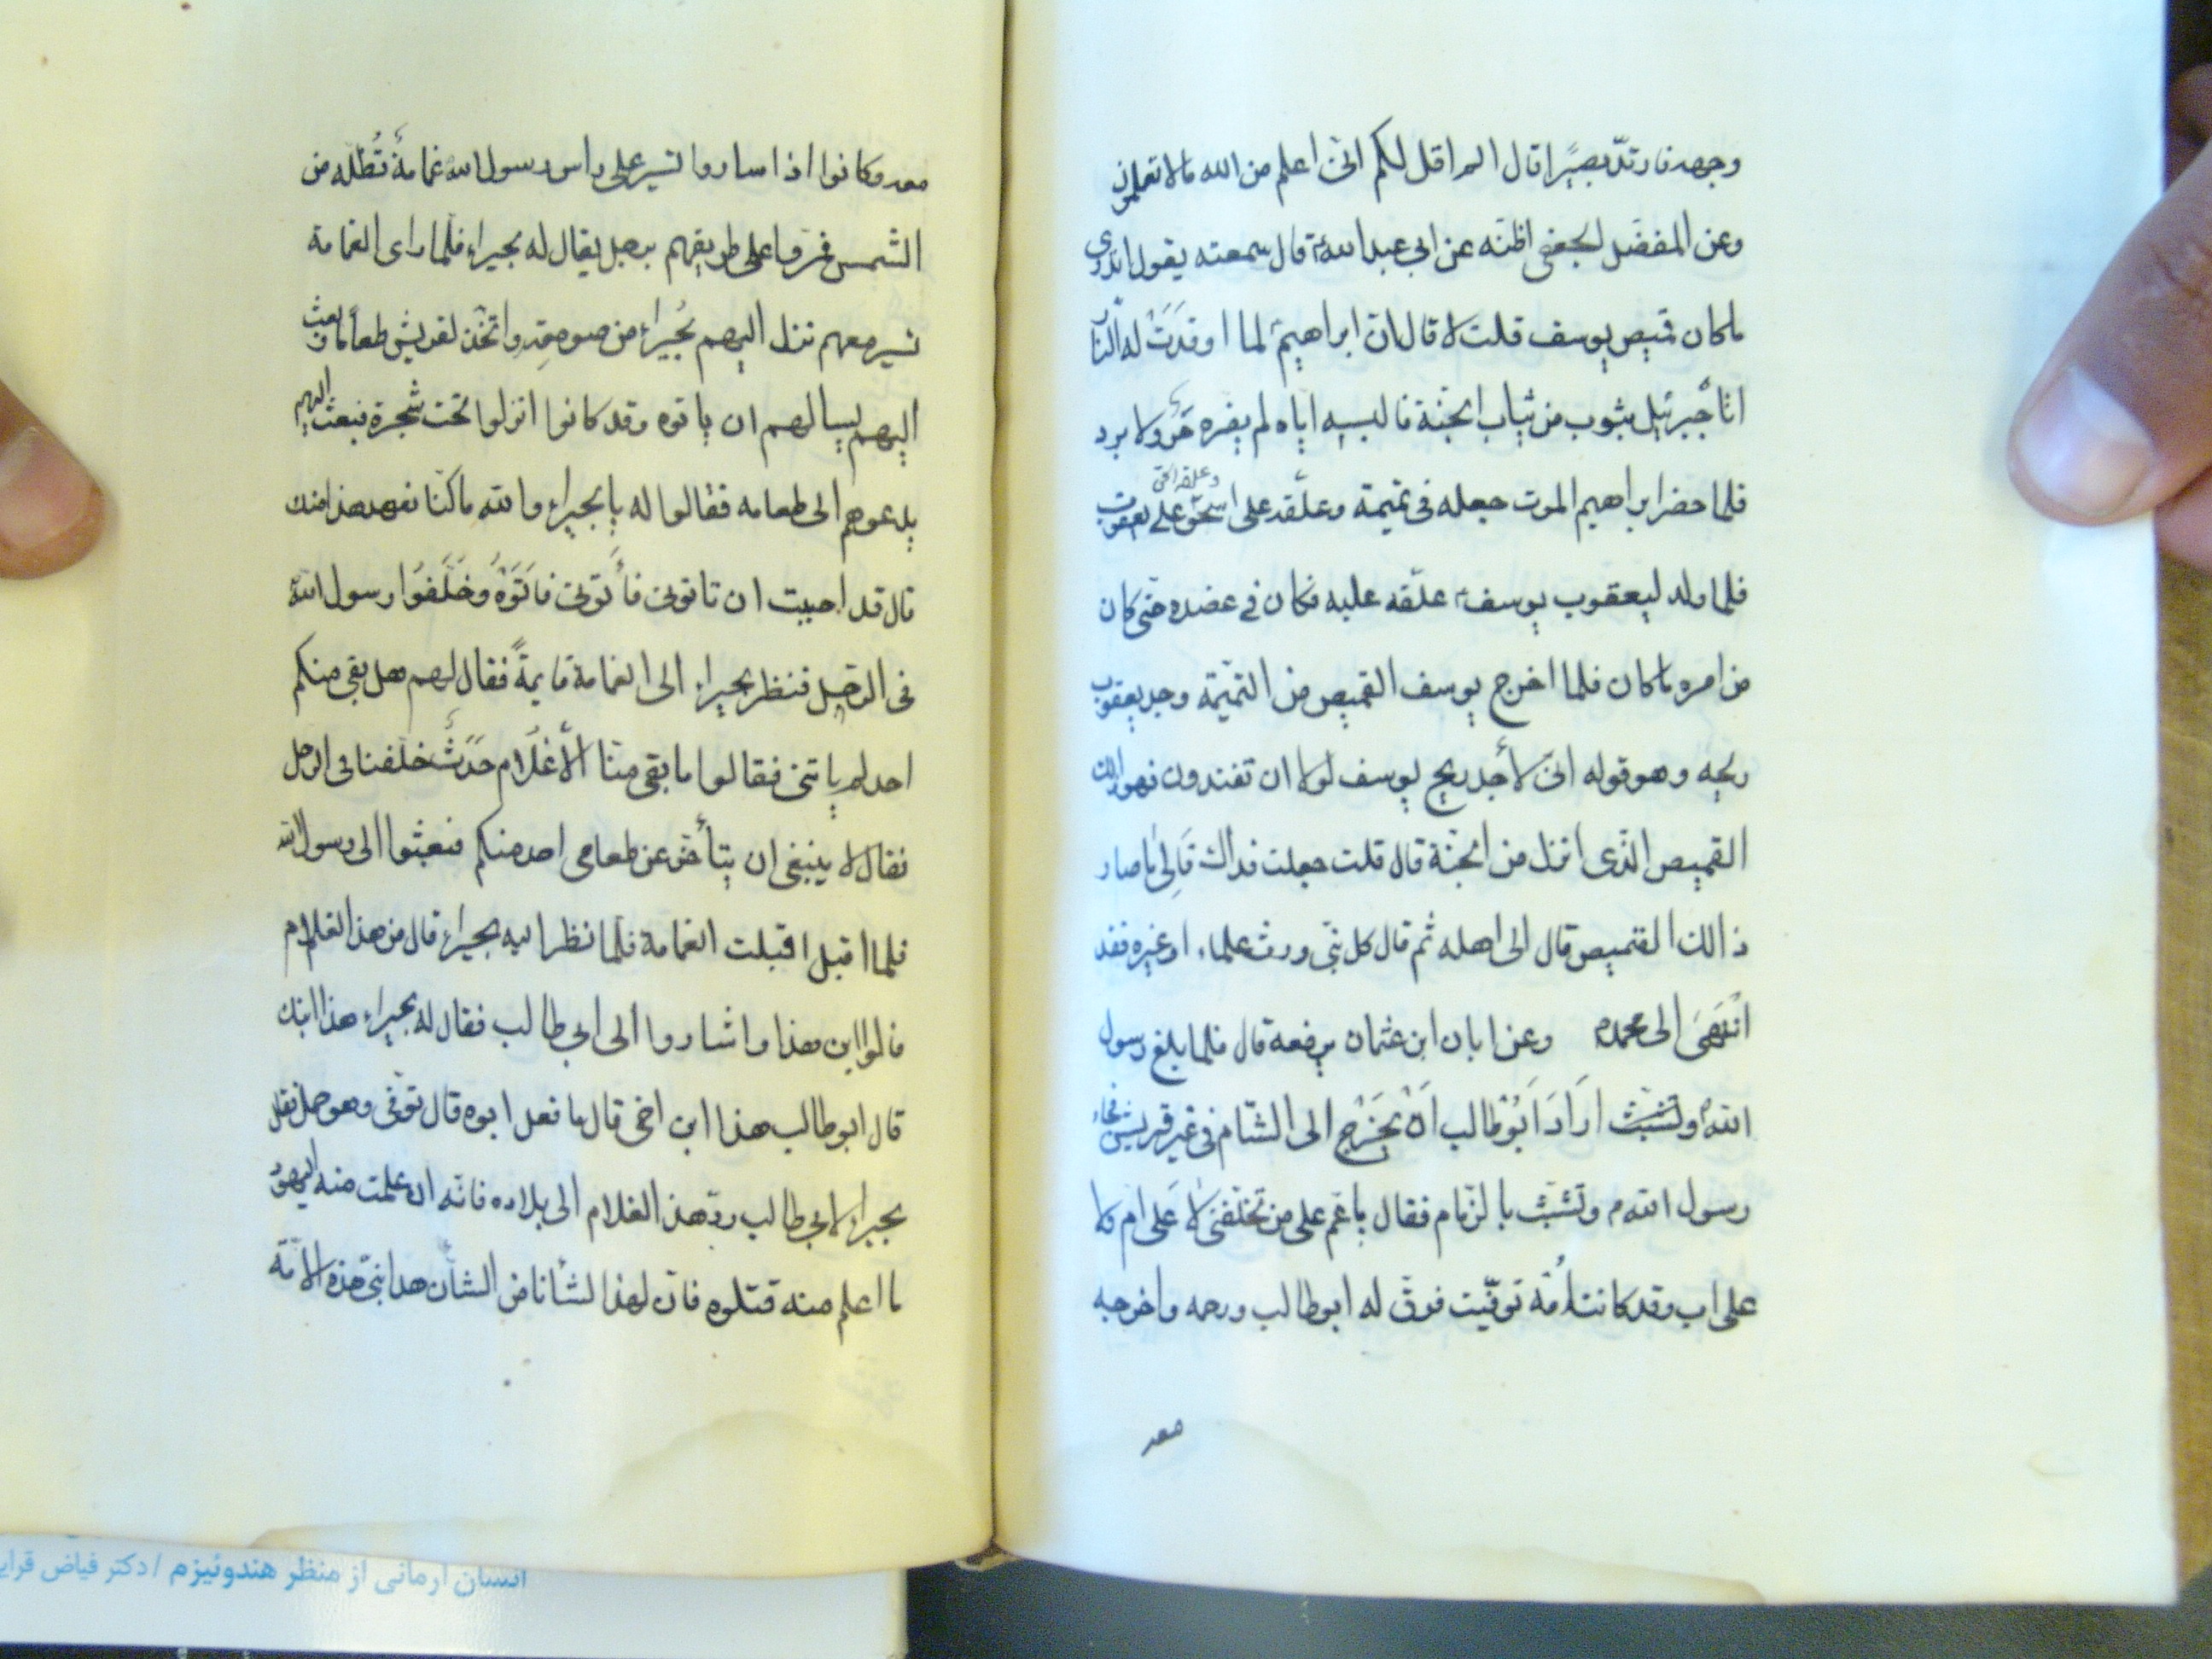 وجهه فارتدّ بصيرًا قال الم اقل لكم انى اعلم من الله مالا تعلمون
وعن المفضل الجعفى اظنه عن ابى عبد الله قال سمعته يقول اتدرى
ماكان قميص يوسف قلت لا قال ان ابراهيم لما اوقدت له النار
اتاه جبرئيل بثوب من ثياب الجنة فالبسه اياه لم يضره حر ولا برد
فلما حضر ابراهيم الموت جعله فى تميمة وعلّقه على اسحق وعلقه اسحق على يعقوب
فلما ولد ليعقوب يوسف علّقه عليه فكان فى عضده حتى كان
من امره ماكان فلما اخرج يوسف القميص من التميمة وجد يعقوب
ريحه وهو قوله انى لأجد ريح يوسف لولا ان تفندون فهو ذلك
القميص الذى انزل من الجنة قال قلت جعلت فداك فالى ما صار
ذالك القميص قال الى اهله ثم قال كل نبى ورث علما او غيره فقد
انْتَهَىَ الى محمد وعن ابان ابن عثمان يرفعه قال فلما بلغ رسول
الله وتشبث ارَادَ اَبوُطالب اَنْ يَخَرْج الى الشام فى عير قريش فجاء
رسول الله وتشبث بالزمام فقال ياعّم على من تخلّفنى لا عَلى ام ولا
على اب وقد كانت اُمّه توفّيت فرق له ابوطالب ورحمه واخرجه
معه
معه وكانوا اذا ساروا تسير على راس رسول الله غمامة تُظلّه من
الشمس فمروا على طريقهم برجل يقال له بحيراء فلما راى الغمامة
تسير معهم نزل اليهم بُحيراء من صومعته واتخذ لقريش طعاماً وبعث
اليهم يسالهم ان ياتوه وقد كانوا انزلوا تحت شجرة فبعث اليهم
يدعوهم الى طعامه فقالوا له يا بحيراء والله ماكنّا نعهد هذا منك
قال قد احببت ان تاتونى فأتونى فاَتَوْهُ وخَلَّفوُا رسول الله
فى الرحل فنظر بحيراء الى الغمامة قايمةً فقال لهم هل بقى منكم
احد لم ياتنى فقالوا ما بقى منّا الّا غلَام حَدَثَ خلّفناه فى الرحل
فقال لا ينبغى ان يتأخر عن طعامى احد منكم فبعثوا الى رسول الله
فلما اقبل اقبلت الغمامة فلما نظر اليه بحيراء قال من هذا الغلام
قالوا ابن هذا واشاروا الى ابى طالب فقال له بحيراء هذا ابنك
قال ابوطالب هذا ابن اخى قال ما فعل ابوه قال توفى وهو حمل فقال
بحيراء لابى طالب ردّ هذا الغلام الى بلاده فانّه ان علمت منه اليهود
ما اعلم منه قتلوه فان لهذا لشانا من الشأن هذا نبىّ هذه الامّة
انسان آرمانی از منظر هندوئیزم / دکتر فیاض قرایی